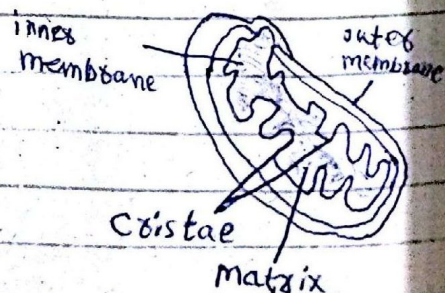 inner
membrane
outer
membrane
Cristae
Matrix